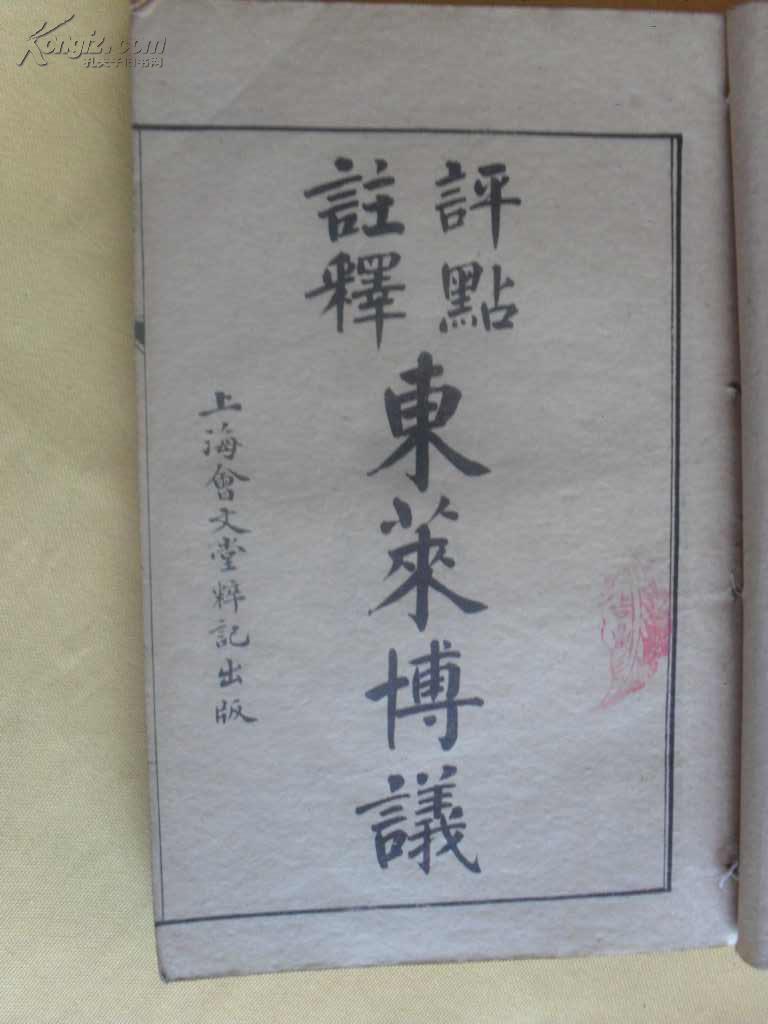 評點
註釋
東萊博議
上海會文堂粹記出版
Kongfz.com
孔夫子旧书网